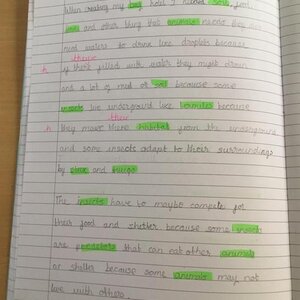 When making my bug hotel I needed soil, 
and other thing that animals needs, they
need waters to drink like droplets because
there
h if there filled with water they might drown
and a lot of mud or soil because some
insects live underground like termites because
their
h they make there habitat from the underground
and some insects adapt to their surroundings
by and
The insects have to maybe compete for
their food and shelter because some insects
are predators that can eat other animals
or shelter because some animals may not
live with others